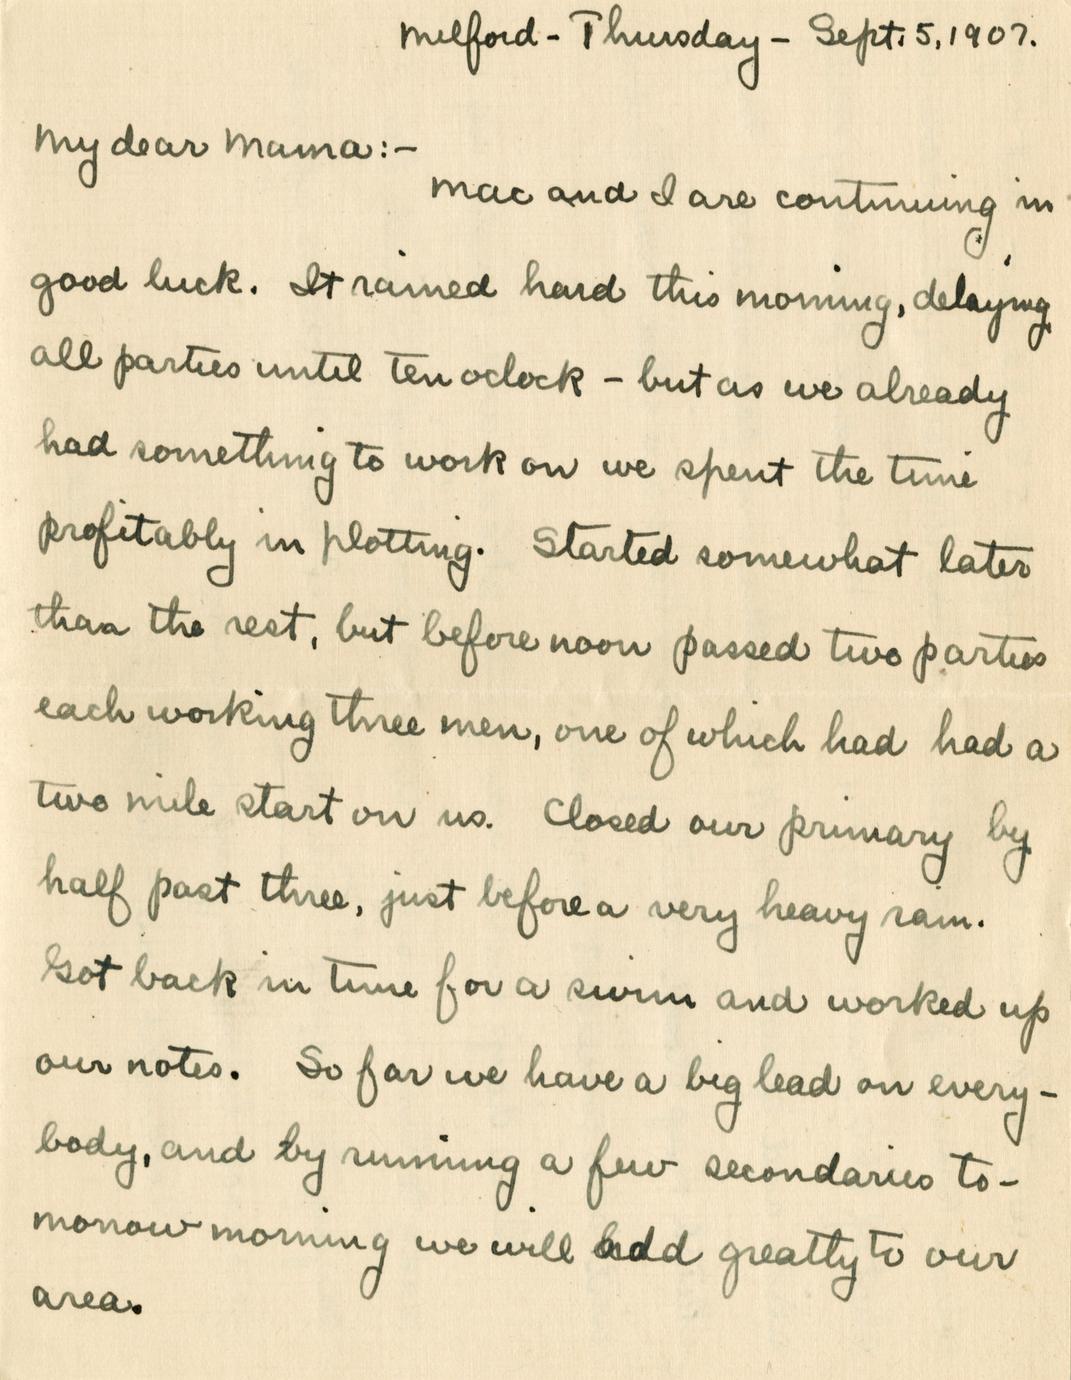 Milford - Thursday - Sept. 5, 1907.
My dear Mama:-
Mac and I are continuing in
good luck. It rained hard this morning, delaying
all parties until ten oclock - but as we already
had something to work on we spent the time
profitably in plotting. Started somewhat later
than the rest, but before noon passed two parties
each working three men, one of which had had a
two mile start on us. Closed our primary by
half past three, just before a very heavy rain.
Got back in time for a swim and worked up
our notes. So far we have a big lead on every-
body, and by running a few secondaries to-
morrow morning we will add greatly to our
area.